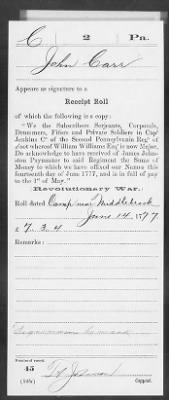 C 2 Pa.
John Carr
Appears as signature to a
Receipt Roll
of which the following is a copy:
"We the Subscribers Serjeants, Corporals,
Drummers, Fifers and Private Soldiers in Capt
Jenkins Cº of the Second Pennsylvania Regt of
Foot whereof William Williams Esqr is now Major.
Do acknowledge to have received of James Johns-
ton Paymaster to said Regiment the Sums of
Money to which we have affixed our Names this
fourteenth day of June 1777, and is in full of pay
to the 1st of May."
Revolutionary War.
Roll dated Camp near Middlebrook
June 14, 1777
£ 7. 3. 4
Remarks:
Signature by mark
45
(545c) Copyist.